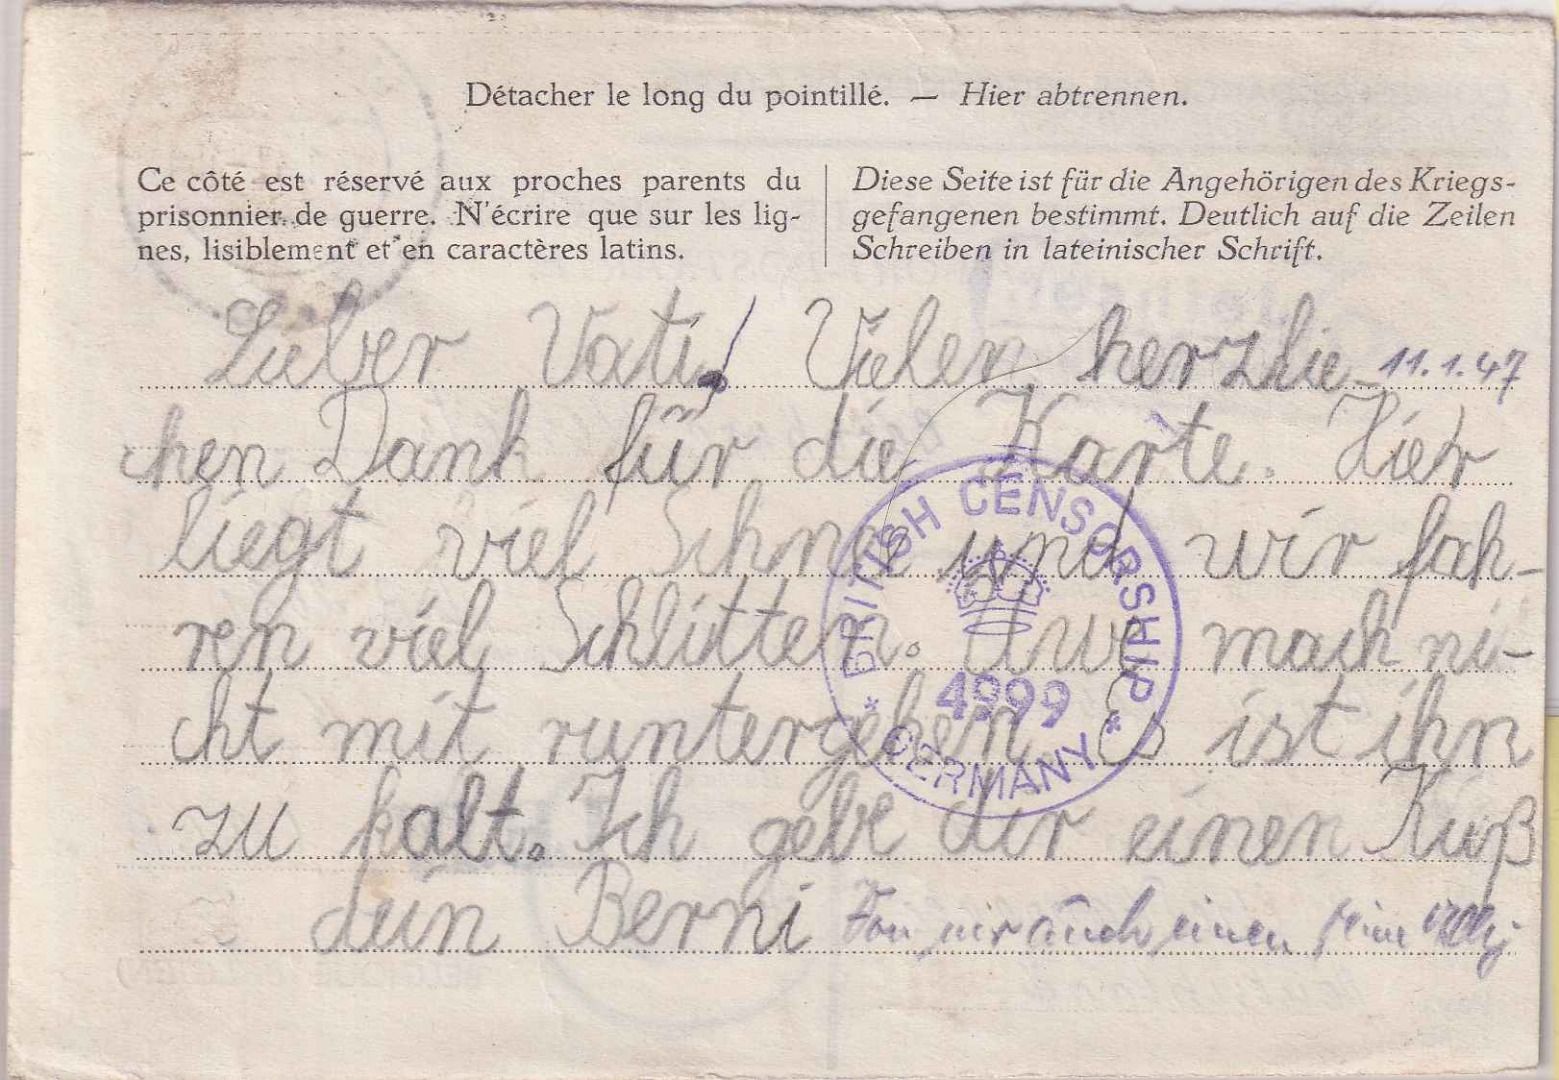 Détacher le long du pointillé. — Hier abtrennen.
Ce côté est réservé aux proches parents du
prisonnier de guerre. N'écrire que sur les lig-
nes, lisiblement et en caractères latins.
Diese Seite ist für die Angehörigen des Kriegs-
gefangenen bestimmt. Deutlich auf die Zeilen
Schreiben in lateinischer Schrift.
Lieber Vati! Vielen herzlie- 11.1.47
chen Dank für die Karte. Hier
liegt viel Schnee und wir fah-
ren viel Schlitten. Uwe mach ni-
cht mit runtergehen Es ist ihn
zu kalt. Ich gebe dir einen Kuß
dein Berni Von mir auch einen
BRITISH CENSORSHIP
4999
GERMANY